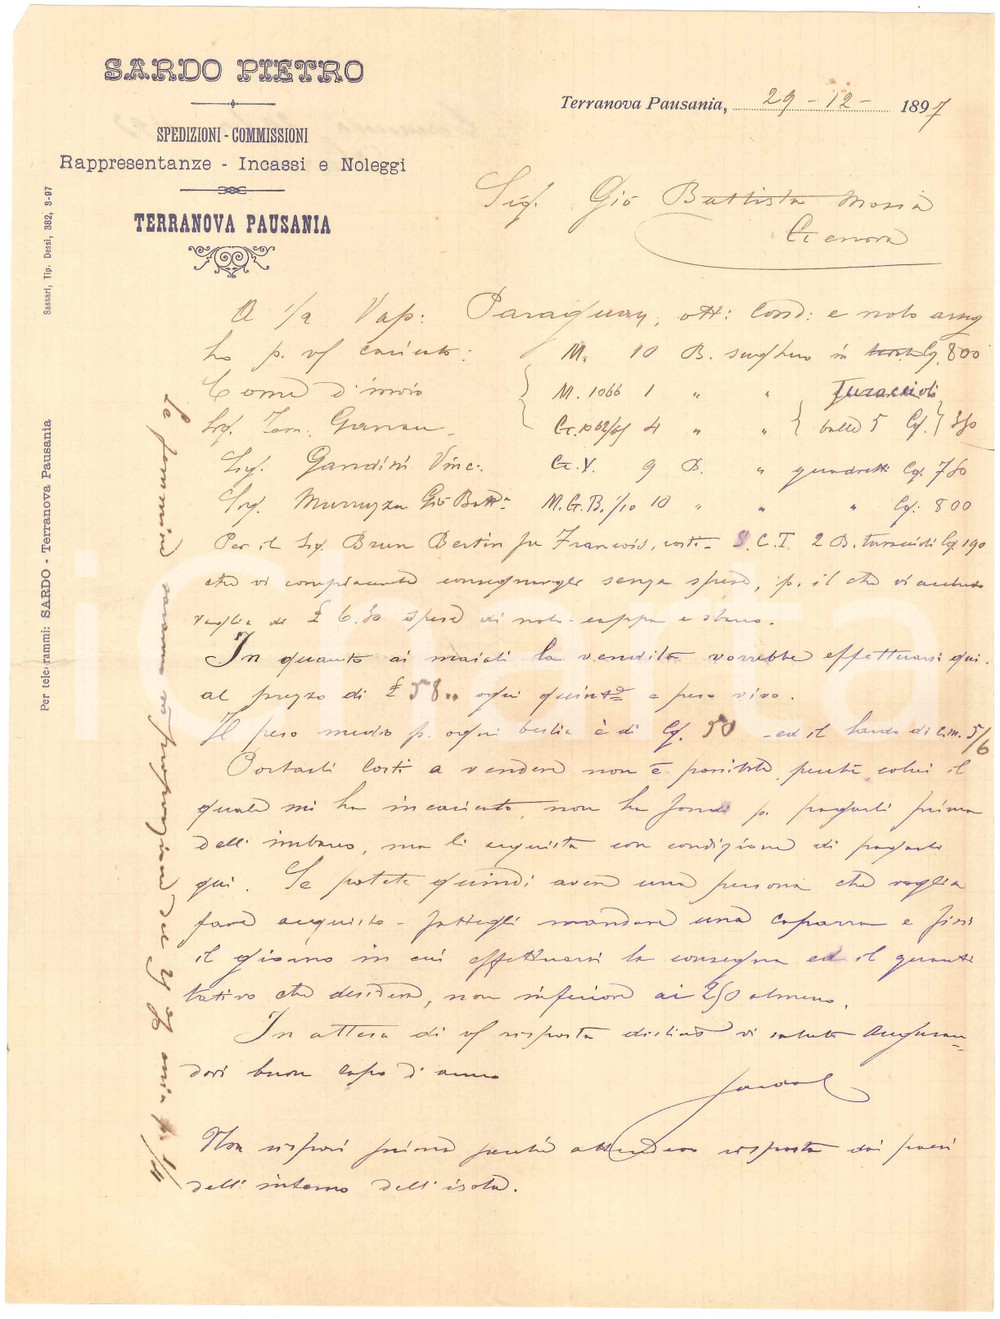 SARDO PIETRO
SPEDIZIONI - COMMISSIONI
Rappresentanze - Incassi e Noleggi
TERRANOVA PAUSANIA
Sassari, Tip. Dessi, 382, 3-97
Per telegrammi: SARDO - Terranova Pausania
Terranova Pausania, 29 - 12 - 1897
Sig. Gio Battista Mossa
Genova
A 1/2 Vap: Paraguay, ott: Cond: e nolo
p. v/ : M. 10 B. sughero in Cg. 800
Come d' M. 1066 1 " " Turaccioli
Sig. 4 " " balle 5 Cg. 380
Sig. Gandini Vinc. G. V. 9 B. " quadretti Cg. 780
Sig. Murruzza Gio Batta M.G.B. 1/10 10 " " " Cg: 800
Per il Sig. Brun Bertin fu François, costì S.C.T. 2 B. turaccioli Cg 190
che vi compiacerete senza spese, p. il che vi accludo
vaglia di £ 6.80 spese di nolo cappa e
In quanto ai maiali la vendita vorrebbe effettuarsi qui.
al prezzo di £ 58 ogni a peso vivo.
Il peso medio p. ogni bestia è di Cg. 50 - ed il lardo di c.m. 5/6
Portarli costì a vendere non è possibile, perché colui il
quale mi ha incaricato, non ha fondi p. pagarli prima
dell' imbarco, ma li acquista con condizione di pagarli
qui. Se potete quindi avere una persona che voglia
fare acquisto - fattegli mandare una caparra e fissi
il giorno in cui effettuarsi la consegna ed il quanti
tativo che desidera, non inferiore ai 250 almeno.
In attesa di v/ risposta vi saluta Auguran=
dovi buon capo d' anno
Sardo
Non risposi prima perché attendevo risposta dai paesi
dell' interno dell' isola.
Le saranno in del 29 mia p. 1/4
iCharta